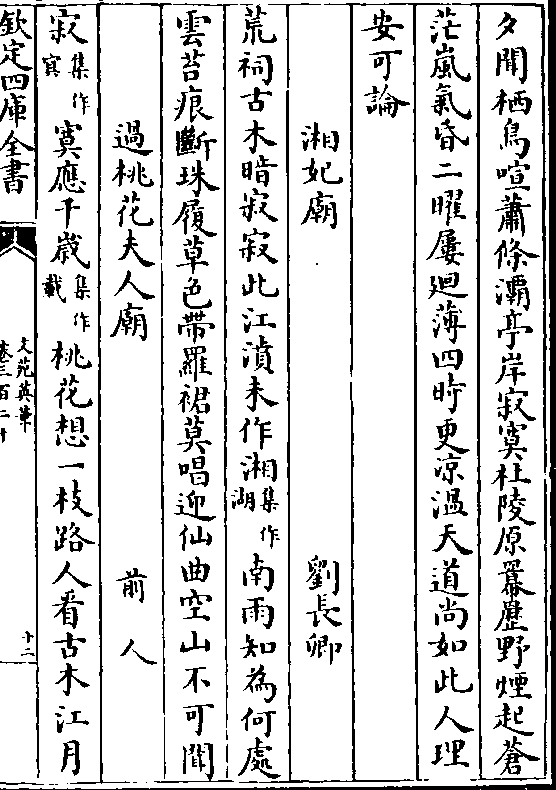 夕聞栖鳥喧蕭條灞亭岸寂寞杜陵原羃䍥野煙起蒼
茫嵐氣昏二曜屢廻薄四時更凉温天道尚如此人理
安可論
湘妃廟 劉長卿
荒祠古木暗寂寂此江濆未作湘集作湖南雨知為何處
雲苔痕斷珠履草色帶羅裙莫唱迎仙曲空山不可聞
過桃花夫人廟 前人
寂集作宫寞應千歳集作載桃花想一枝路人看古木江月
欽定四庫全書
文苑英華
卷三百二十
十二